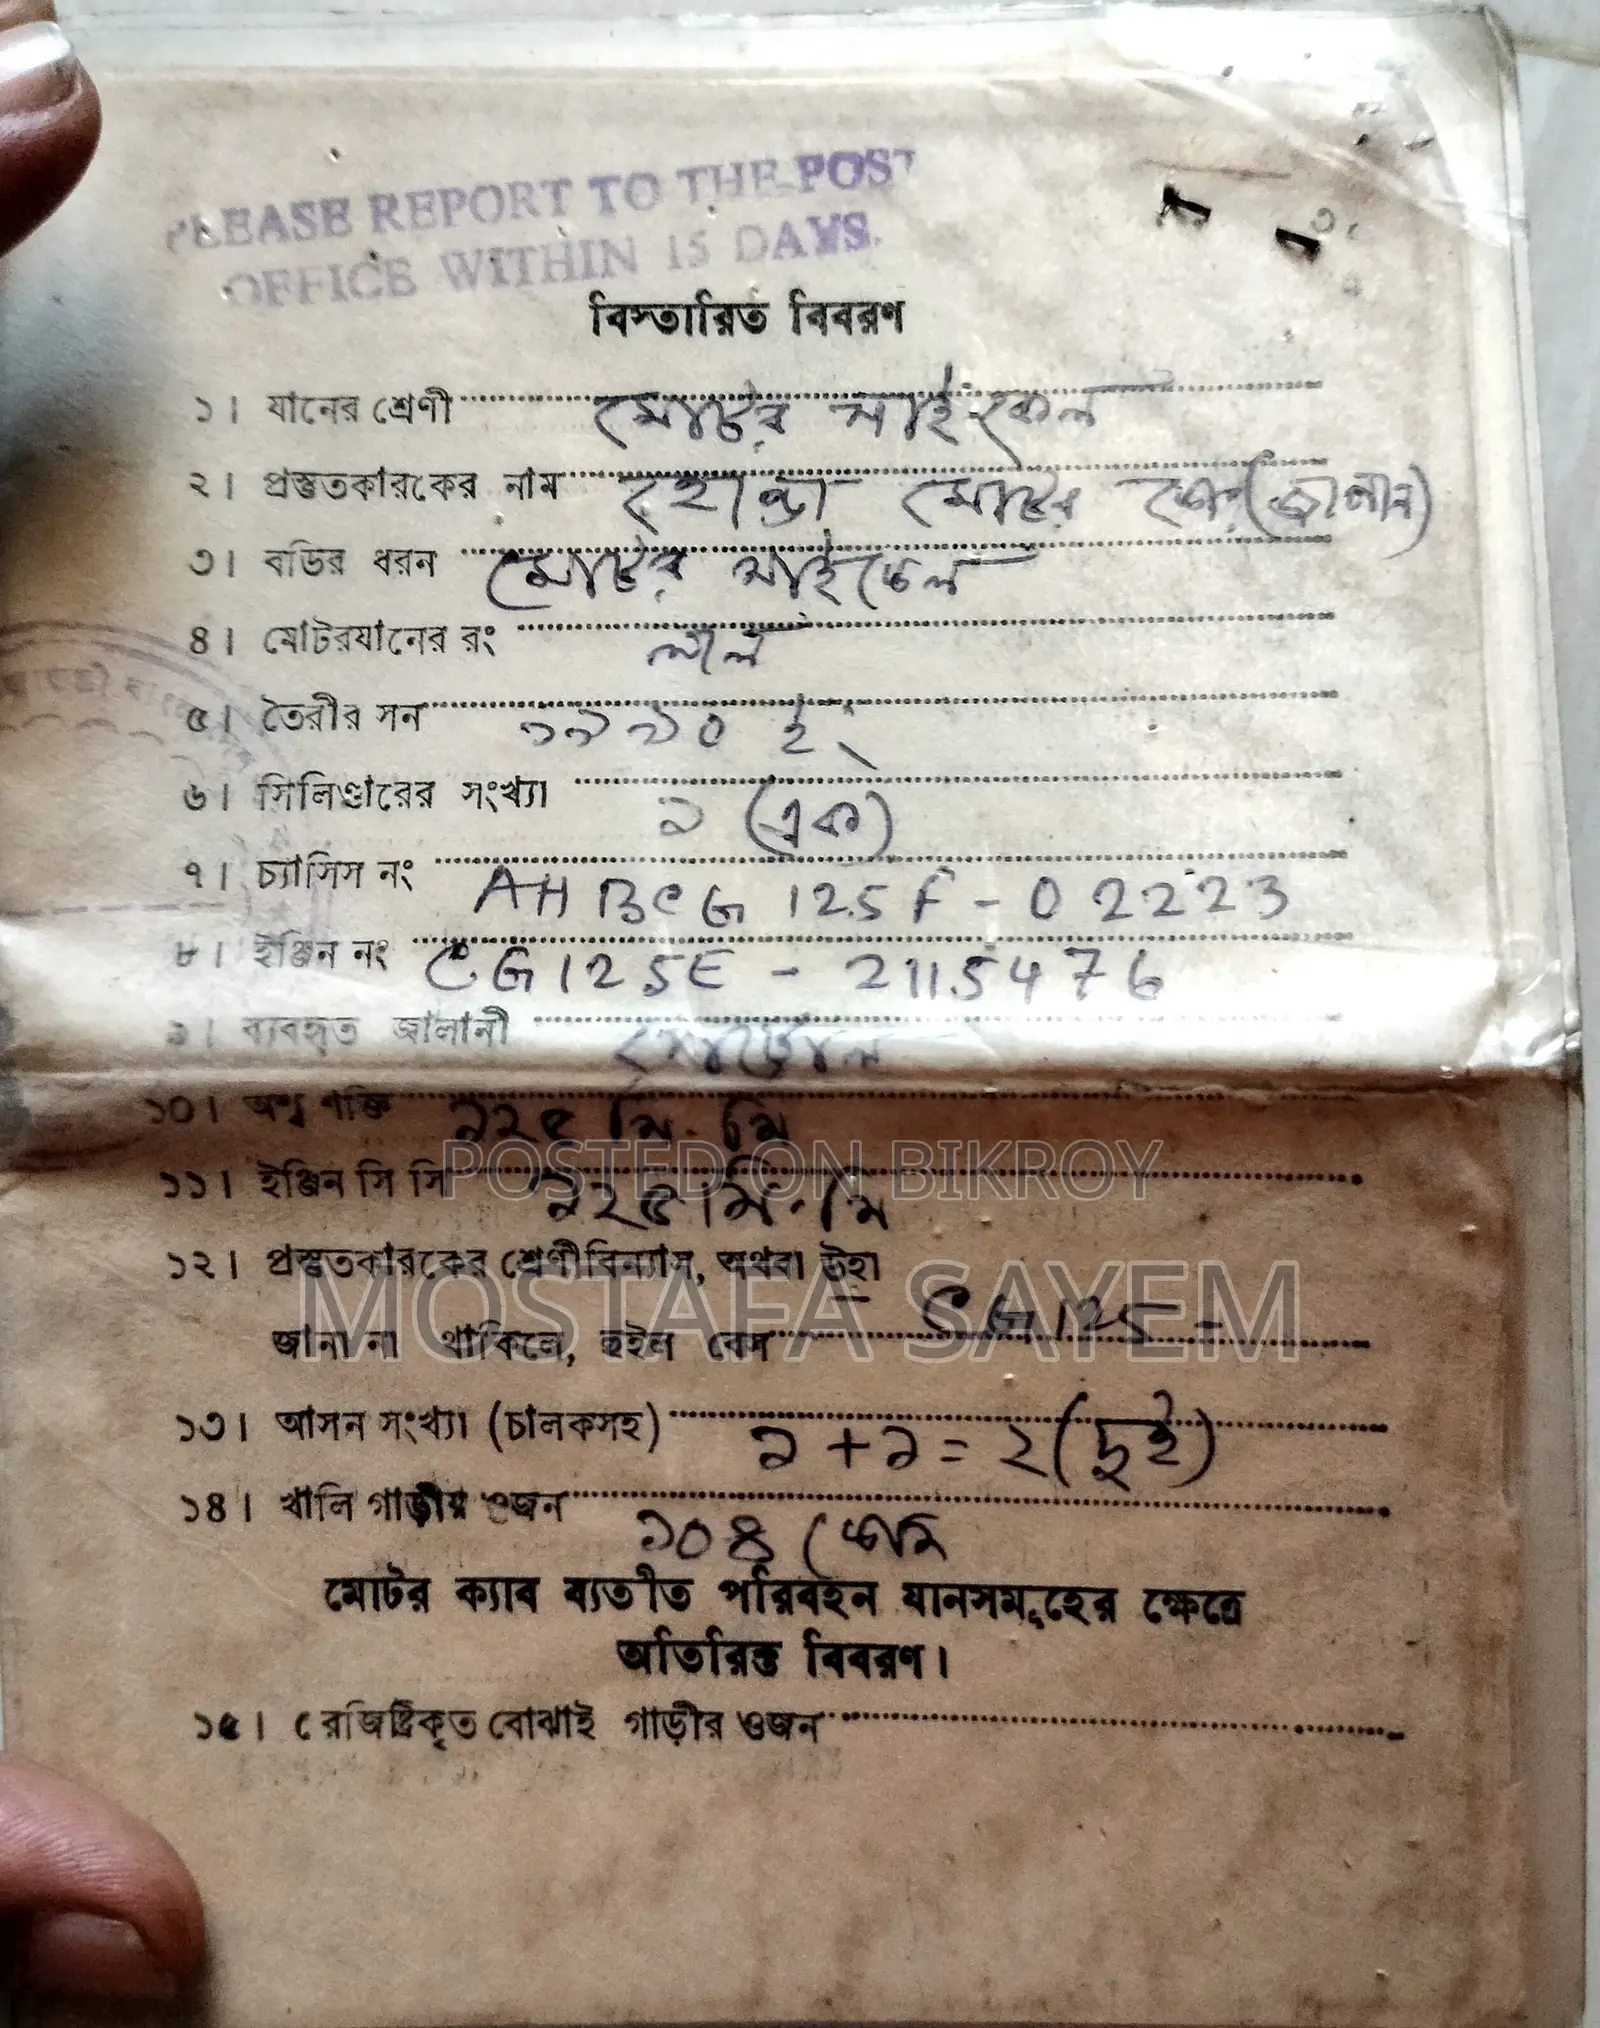 PLEASE REPORT TO THE POST
OFFICE WITHIN 15 DAYS.
বিস্তারিত বিবরণ
১। যানের শ্রেণী মোটর সাইকেল
২। প্রস্তুতকারকের নাম হোন্ডা মোটর কোং (জাপান)
৩। বডির ধরন মোটর সাইকেল
৪। মোটরযানের রং লাল
৫। তৈরীর সন ১৯৯০ ইং
৬। সিলিণ্ডারের সংখ্যা ১ (এক)
৭। চ্যাসিস নং AHBCG125F - 02223
৮। ইঞ্জিন নং CG125E - 2115476
৯। ব্যবহৃত জ্বালানী পেট্রোল
১০। অশ্ব শক্তি ১২৫ সি. সি
১১। ইঞ্জিন সি সি ১২৫ সি. সি
POSTED ON BIKROY
১২। প্রস্তুতকারকের শ্রেণীবিন্যাস, অথবা উহা
MOSTAFA SAYEM
জানা না থাকিলে, হুইল বেস = CG125 -
১৩। আসন সংখ্যা (চালকসহ) ১ + ১ = ২ (দুই)
১৪। খালি গাড়ীর ওজন ১০৪ কেজি
মোটর ক্যাব ব্যতীত পরিবহন যানসমূহের ক্ষেত্রে
অতিরিক্ত বিবরণ।
১৫। রেজিষ্ট্রিকৃত বোঝাই গাড়ীর ওজন